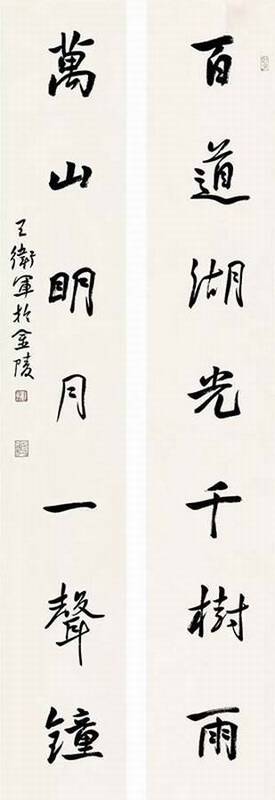 百道湖光千樹雨
萬山明月一聲鐘
王衛軍於金陵